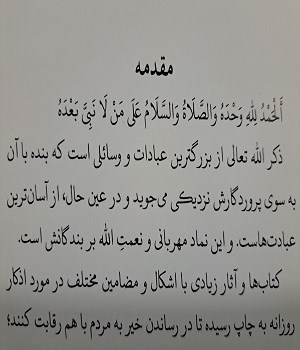 مقدمه
أَلْحَمْدُ لِلّٰهِ وَحْدَهُ وَالصَّلَاةُ وَالسَّلَامُ عَلَى مَنْ لَا نَبِيَّ بَعْدَهُ
ذکر الله تعالی از بزرگترین عبادات و وسائلی است که بنده با آن
به سوی پروردگارش نزدیکی می‌جوید و در عین حال، از آسان‌ترین
عبادت‌هاست. و این نماد مهربانی و نعمتِ الله بر بندگانش است.
کتاب‌ها و آثار زیادی با اشکال و مضامین مختلف در مورد اذکار
روزانه به چاپ رسیده تا در رساندن خیر به مردم با هم رقابت کنند؛